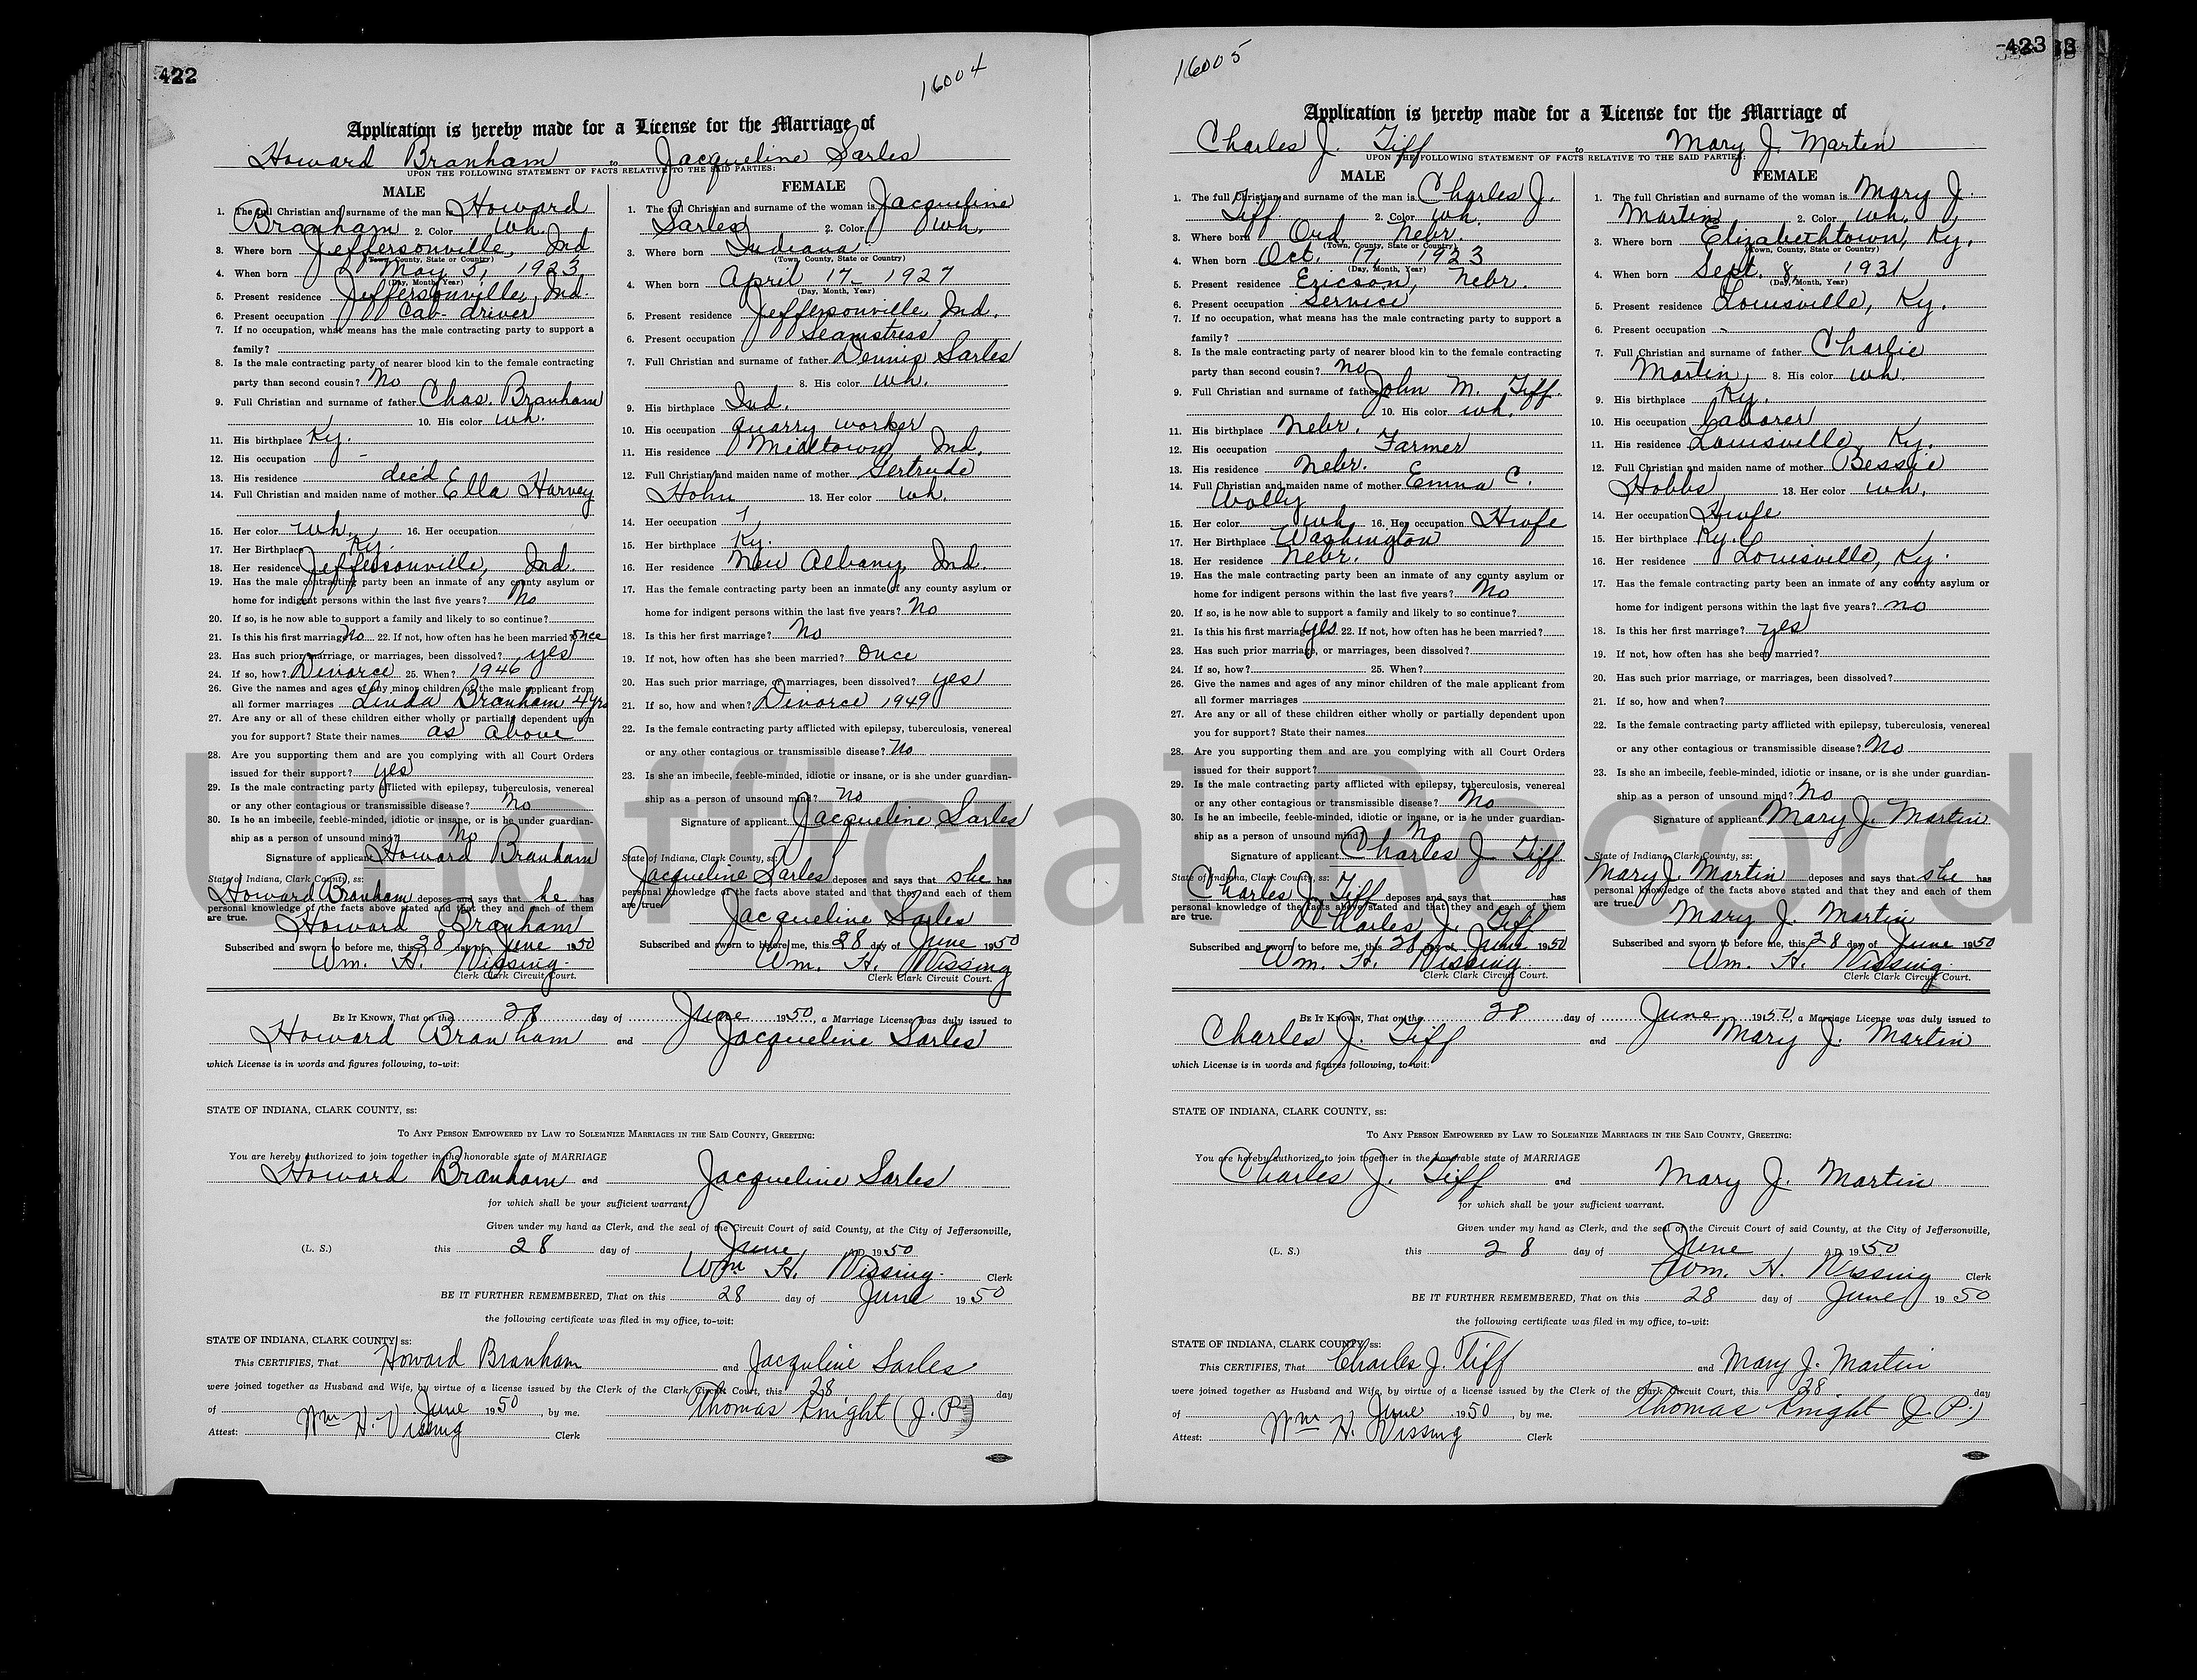 422
16004
Application is hereby made for a License for the Marriage of
Howard Branham to Jacqueline Sarles
UPON THE FOLLOWING STATEMENT OF FACTS RELATIVE TO THE SAID PARTIES:
MALE
1. The full Christian and surname of the man is Howard
Branham 2. Color wh.
3. Where born Jeffersonville, Ind
(Town, County, State or Country)
4. When born May 3, 1923
(Day, Month, Year)
5. Present residence Jeffersonville, Ind.
6. Present occupation Cab driver
7. If no occupation, what means has the male contracting party to support a
family?
8. Is the male contracting party of nearer blood kin to the female contracting
party than second cousin? No
9. Full Christian and surname of father Chas. Branham
10. His color wh.
11. His birthplace Ky.
12. His occupation -
13. His residence dec'd
14. Full Christian and maiden name of mother Ella Harvey
15. Her color wh. 16. Her occupation
17. Her Birthplace Ky.
18. Her residence Jeffersonville, Ind.
19. Has the male contracting party been an inmate of any county asylum or
home for indigent persons within the last five years? No
20. If so, is he now able to support a family and likely to so continue?
21. Is this his first marriage? No 22. If not, how often has he been married? once
23. Has such prior marriage, or marriages, been dissolved? yes
24. If so, how? Divorce 25. When? 1946
26. Give the names and ages of any minor children of the male applicant from
all former marriages Linda Branham 4 yrs
27. Are any or all of these children either wholly or partially dependent upon
you for support? State their names as above
28. Are you supporting them and are you complying with all Court Orders
issued for their support? yes
29. Is the male contracting party afflicted with epilepsy, tuberculosis, venereal
or any other contagious or transmissible disease? No
30. Is he an imbecile, feeble-minded, idiotic or insane, or is he under guardian-
ship as a person of unsound mind? No
Signature of applicant Howard Branham
State of Indiana, Clark County, ss:
Howard Branham deposes and says that he has
personal knowledge of the facts above stated and that they and each of them
are true.
Howard Branham
Subscribed and sworn to before me, this 28 day of June 1950
Wm. H. Vissing
Clerk Clark Circuit Court.
FEMALE
1. The full Christian and surname of the woman is Jacqueline
Sarles 2. Color wh.
3. Where born Indiana
(Town, County, State or Country)
4. When born April 17 1927
(Day, Month, Year)
5. Present residence Jeffersonville, Ind.
6. Present occupation Seamstress
7. Full Christian and surname of father Dennis Sarles
8. His color wh.
9. His birthplace Ind.
10. His occupation quarry worker
11. His residence Milltown Ind.
12. Full Christian and maiden name of mother Gertrude
Hohn 13. Her color wh.
14. Her occupation
15. Her birthplace Ky.
16. Her residence New Albany, Ind.
17. Has the female contracting party been an inmate of any county asylum or
home for indigent persons within the last five years? No
18. Is this her first marriage? No
19. If not, how often has she been married? once
20. Has such prior marriage, or marriages, been dissolved? yes
21. If so, how and when? Divorce 1949
22. Is the female contracting party afflicted with epilepsy, tuberculosis, venereal
or any other contagious or transmissible disease? No
23. Is she an imbecile, feeble-minded, idiotic or insane, or is she under guardian-
ship as a person of unsound mind? No
Signature of applicant Jacqueline Sarles
State of Indiana, Clark County, ss:
Jacqueline Sarles deposes and says that she has
personal knowledge of the facts above stated and that they and each of them
are true.
Jacqueline Sarles
Subscribed and sworn to before me, this 28 day of June 1950
Wm. H. Vissing
Clerk Clark Circuit Court.
BE IT KNOWN, That on the 28 day of June 1950, a Marriage License was duly issued to
Howard Branham and Jacqueline Sarles
which License is in words and figures following, to-wit:
STATE OF INDIANA, CLARK COUNTY, ss:
TO ANY PERSON EMPOWERED BY LAW TO SOLEMNIZE MARRIAGES IN THE SAID COUNTY, GREETING:
You are hereby authorized to join together in the honorable state of MARRIAGE
Howard Branham and Jacqueline Sarles
for which shall be your sufficient warrant.
Given under my hand as Clerk, and the seal of the Circuit Court of said County, at the City of Jeffersonville,
(L. S.) this 28 day of June A.D. 1950
Wm H. Vissing Clerk
BE IT FURTHER REMEMBERED, That on this 28 day of June 1950
the following certificate was filed in my office, to-wit:
STATE OF INDIANA, CLARK COUNTY, ss:
This CERTIFIES, That Howard Branham and Jacquline Sarles
were joined together as Husband and Wife, by virtue of a license issued by the Clerk of the Clark Circuit Court, this 28 day
of June 1950, by me. Thomas Knight (J. P.)
Attest: Wm H. Vissing Clerk
423
16005
Application is hereby made for a License for the Marriage of
Charles J. Tiff to Mary J. Martin
UPON THE FOLLOWING STATEMENT OF FACTS RELATIVE TO THE SAID PARTIES:
MALE
1. The full Christian and surname of the man is Charles J.
Tiff 2. Color wh.
3. Where born Ord, Nebr.
(Town, County, State or Country)
4. When born Oct. 17, 1923
(Day, Month, Year)
5. Present residence Ericson, Nebr.
6. Present occupation Service
7. If no occupation, what means has the male contracting party to support a
family?
8. Is the male contracting party of nearer blood kin to the female contracting
party than second cousin? No
9. Full Christian and surname of father John M. Tiff.
10. His color wh.
11. His birthplace Nebr.
12. His occupation Farmer
13. His residence Nebr.
14. Full Christian and maiden name of mother Emma C.
Wolly
15. Her color wh 16. Her occupation Hwfe
17. Her Birthplace Washington
18. Her residence Nebr.
19. Has the male contracting party been an inmate of any county asylum or
home for indigent persons within the last five years? No
20. If so, is he now able to support a family and likely to so continue?
21. Is this his first marriage? yes 22. If not, how often has he been married?
23. Has such prior marriage, or marriages, been dissolved?
24. If so, how? 25. When?
26. Give the names and ages of any minor children of the male applicant from
all former marriages
27. Are any or all of these children either wholly or partially dependent upon
you for support? State their names
28. Are you supporting them and are you complying with all Court Orders
issued for their support?
29. Is the male contracting party afflicted with epilepsy, tuberculosis, venereal
or any other contagious or transmissible disease? No
30. Is he an imbecile, feeble-minded, idiotic or insane, or is he under guardian-
ship as a person of unsound mind? No
Signature of applicant Charles J. Tiff.
State of Indiana, Clark County, ss:
Charles J. Tiff deposes and says that has
personal knowledge of the facts above stated and that they and each of them
are true.
Charles J. Tiff
Subscribed and sworn to before me, this 28 day of June 1950
Wm. H. Vissing.
Clerk Clark Circuit Court.
FEMALE
1. The full Christian and surname of the woman is Mary J.
Martin 2. Color wh.
3. Where born Elizabethtown, Ky.
(Town, County, State or Country)
4. When born Sept. 8, 1931
(Day, Month, Year)
5. Present residence Louisville, Ky.
6. Present occupation -
7. Full Christian and surname of father Charlie
Martin 8. His color wh.
9. His birthplace Ky.
10. His occupation laborer
11. His residence Louisville, Ky.
12. Full Christian and maiden name of mother Bessie
Hobbs 13. Her color wh.
14. Her occupation Hwfe
15. Her birthplace Ky.
16. Her residence Louisville, Ky.
17. Has the female contracting party been an inmate of any county asylum or
home for indigent persons within the last five years? no
18. Is this her first marriage? yes
19. If not, how often has she been married?
20. Has such prior marriage, or marriages, been dissolved?
21. If so, how and when?
22. Is the female contracting party afflicted with epilepsy, tuberculosis, venereal
or any other contagious or transmissible disease? No
23. Is she an imbecile, feeble-minded, idiotic or insane, or is she under guardian-
ship as a person of unsound mind? No
Signature of applicant Mary J. Martin
State of Indiana, Clark County, ss:
Mary J. Martin deposes and says that she has
personal knowledge of the facts above stated and that they and each of them
are true.
Mary J. Martin
Subscribed and sworn to before me, this 28 day of June 1950
Wm. H. Vissing
Clerk Clark Circuit Court.
BE IT KNOWN, That on the 28 day of June 1950, a Marriage License was duly issued to
Charles J. Tiff and Mary J. Martin
which License is in words and figures following, to-wit:
STATE OF INDIANA, CLARK COUNTY, ss:
TO ANY PERSON EMPOWERED BY LAW TO SOLEMNIZE MARRIAGES IN THE SAID COUNTY, GREETING:
You are hereby authorized to join together in the honorable state of MARRIAGE
Charles J. Tiff and Mary J. Martin
for which shall be your sufficient warrant.
Given under my hand as Clerk, and the seal of the Circuit Court of said County, at the City of Jeffersonville,
(L. S.) this 28 day of June A.D. 1950
Wm. H. Vissing Clerk
BE IT FURTHER REMEMBERED, That on this 28 day of June 1950
the following certificate was filed in my office, to-wit:
STATE OF INDIANA, CLARK COUNTY, ss:
This CERTIFIES, That Charles J. Tiff and Mary J. Martin
were joined together as Husband and Wife, by virtue of a license issued by the Clerk of the Clark Circuit Court, this 28 day
of June 1950, by me. Thomas Knight (J. P.)
Attest: Wm H. Vissing Clerk
Unofficial Record